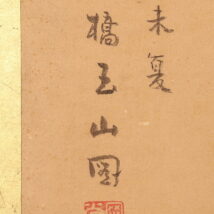 未夏
橋玉山図